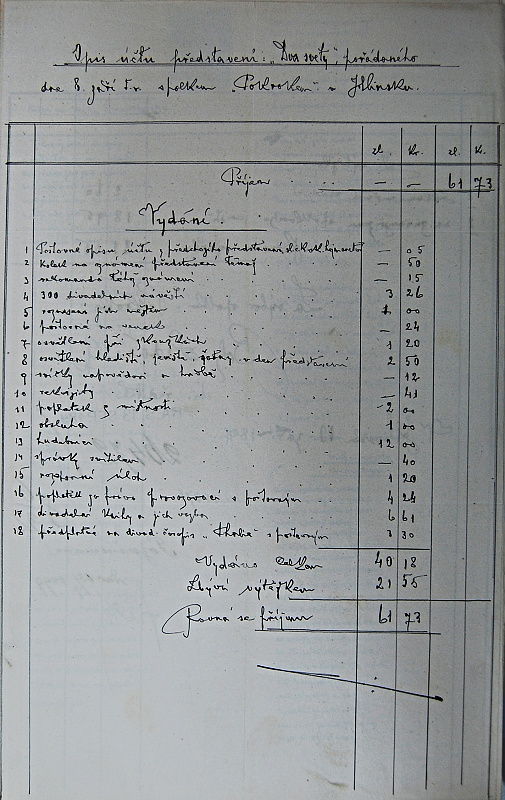 Opis účtu představení: „Dva světy“, pořádaného
dne 8. září t.r. spolkem „Pokrokem“ v Jilínsku.
zl. kr. zl. k.
Příjem — — 61 73
Vydání
1 Poštovné opisu účtu z předešlého představení — 05
2 Kolek na oznámení představení — 50
3 rekomando oznámení — 15
4 300 divadelních návěští 3 26
5 roznášení jich městem 1 00
6 poštovné na — 24
7 osvětlení při zkouškách 1 20
8 osvětlení hlediště, jeviště, šatny v den představení 2 50
9 svíčky napovědovi a hudbě — 12
10 rekvisity — 41
11 poplatek z místnosti 2 00
12 obsluha 1 00
13 hudebníci 12 00
14 správky svítilen — 40
15 rozepsání úloh 1 20
16 poplatek za právo provozovací s poštovným 4 24
17 divadelní knihy a jich vazba 6 61
18 předplatné na divad. časopis „Thalie“ s poštovným 3 30
Vydáno celkem 40 18
Zbývá výtěžkem 21 55
Rovná se příjmu 61 73